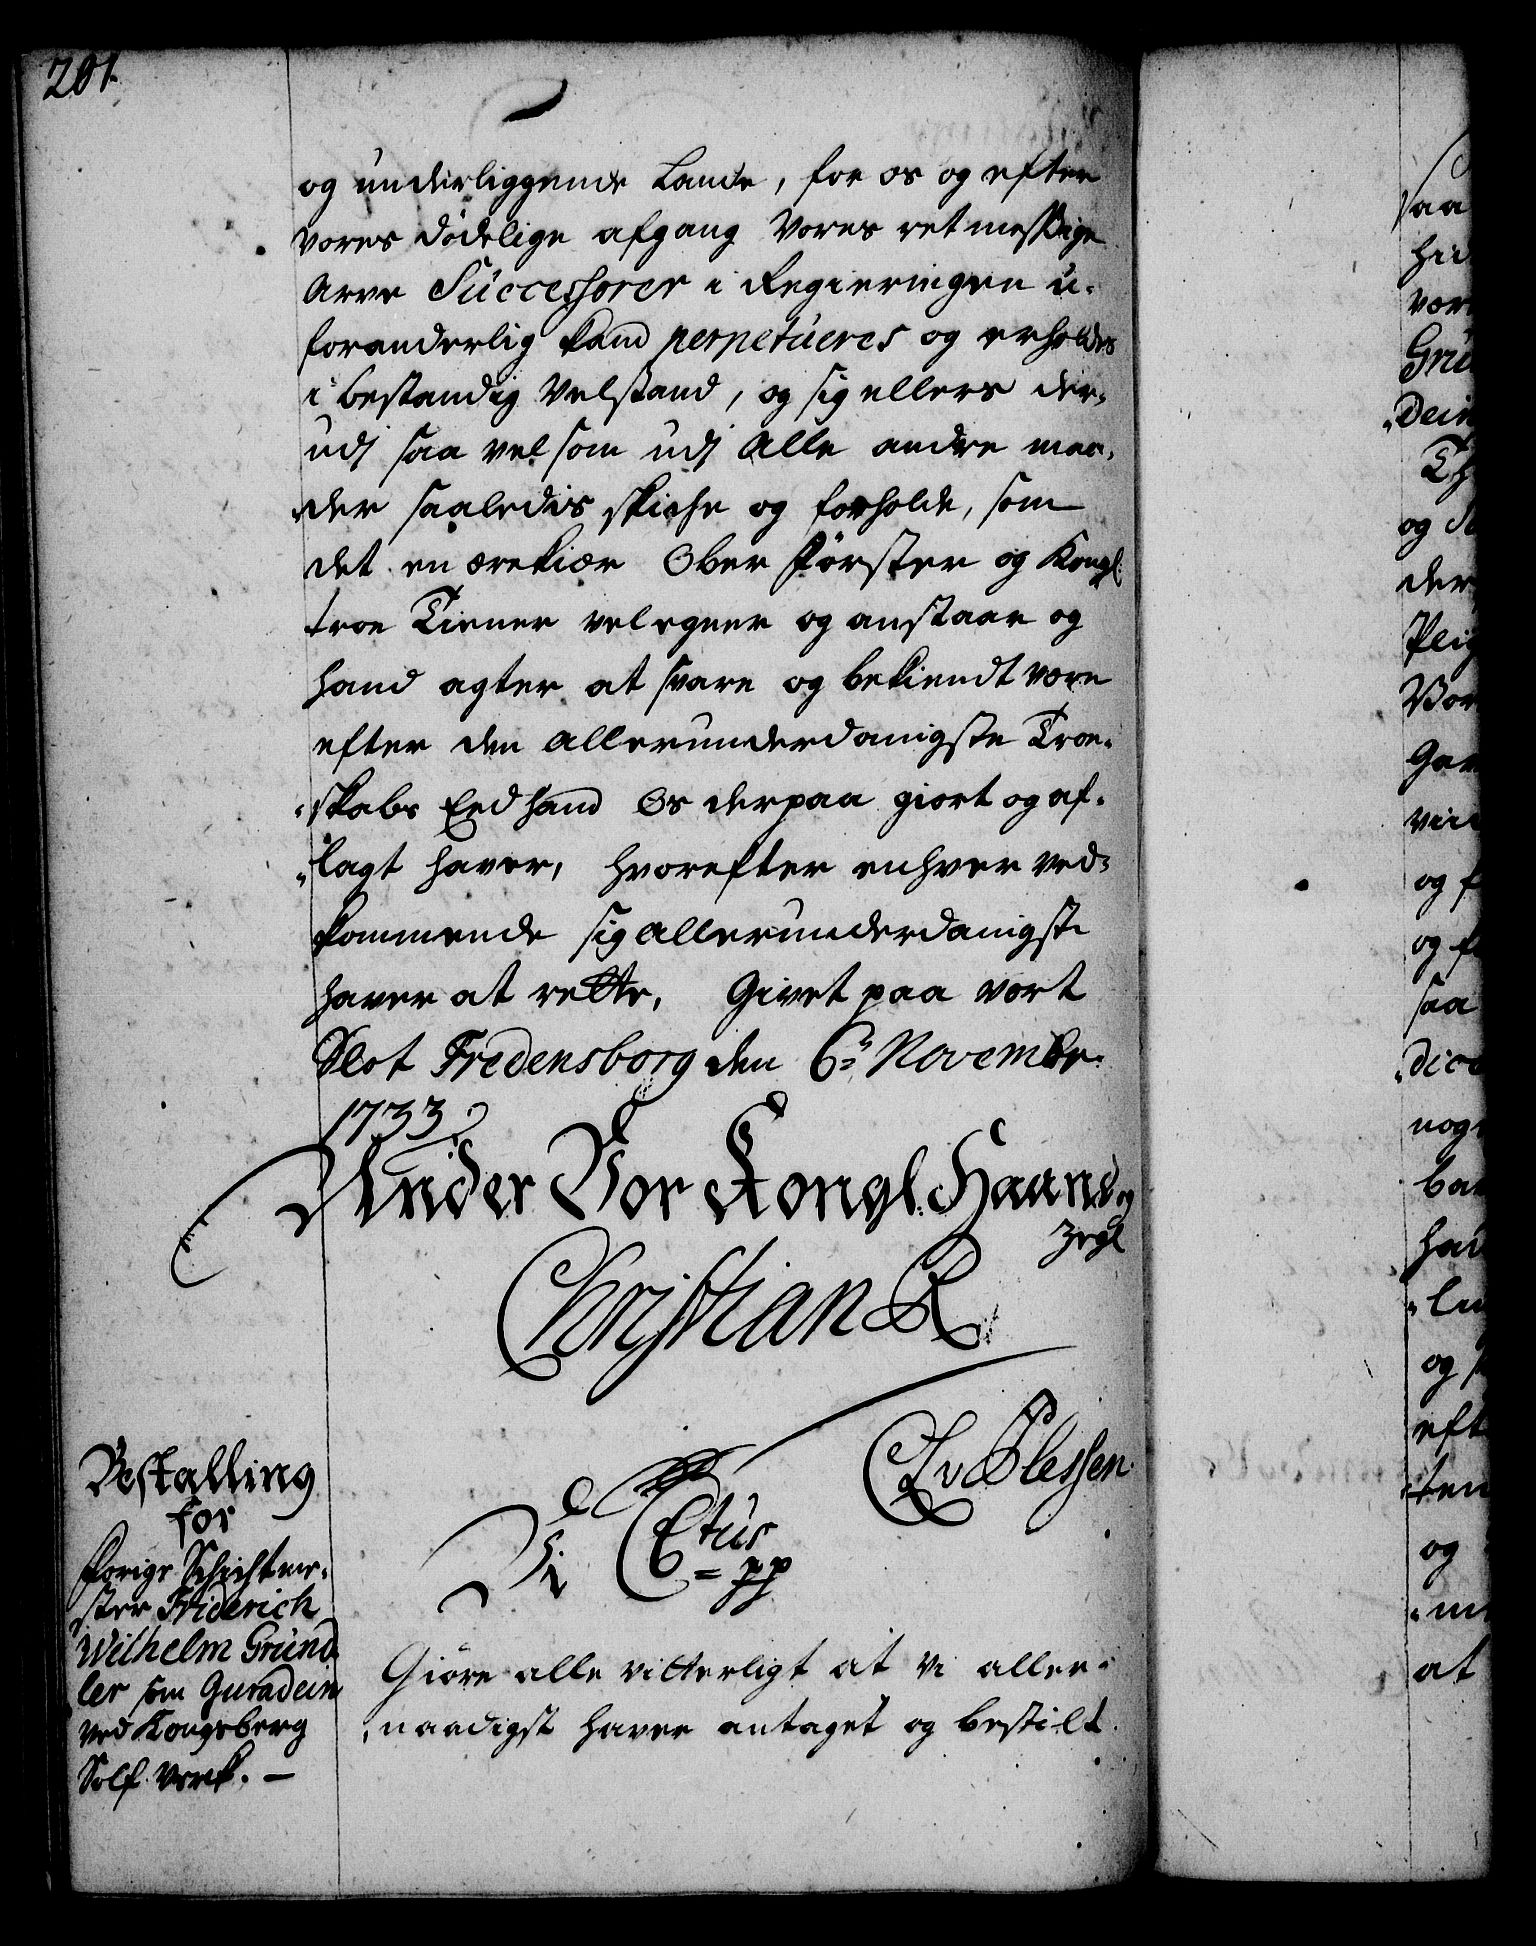 201.
og underliggende Lande, for os og efter
vores dödelige afgang Vores retmessige
Arve Successorer i Regieringen u-
foranderlig kand perpetueres og erholdes
i bestandig Velstand, og sig ellers der-
udj saa vel som udj alle andre maa-
der saaledis skicke og forholde, som
det en ærekiær Ober Förster og Kongl:
troe Tiener vel egner og anstaar og
hand agter at svare og bekiendt være
efter den allerunderdanigste Troe-
skabs Eed hand Os derpaa giort og af-
lagt haver, hvorefter enhver ved-
kommende sig allerunderdanigst
haver at rette, Givet paa vort
Slot Fredensborg den 6: Novembr.
1733.
Under Vor Kongl. Haand og
Zegl
Christian R
CLvPlessen.
Bestalling
for
forige Schichtme-
ster Friderich
Wilhelm Gründ-
ler som Guradein
ved Kongsberg
Sölf. Verk. —
Vi C6tus = pp
Giöre alle vitterligt at vi aller-
naadigst haver antaget og bestilt
saa
vær
Grü
Dein
og
der
Plig
Vor
og f
og f
saa
nog
og
eft
og
at